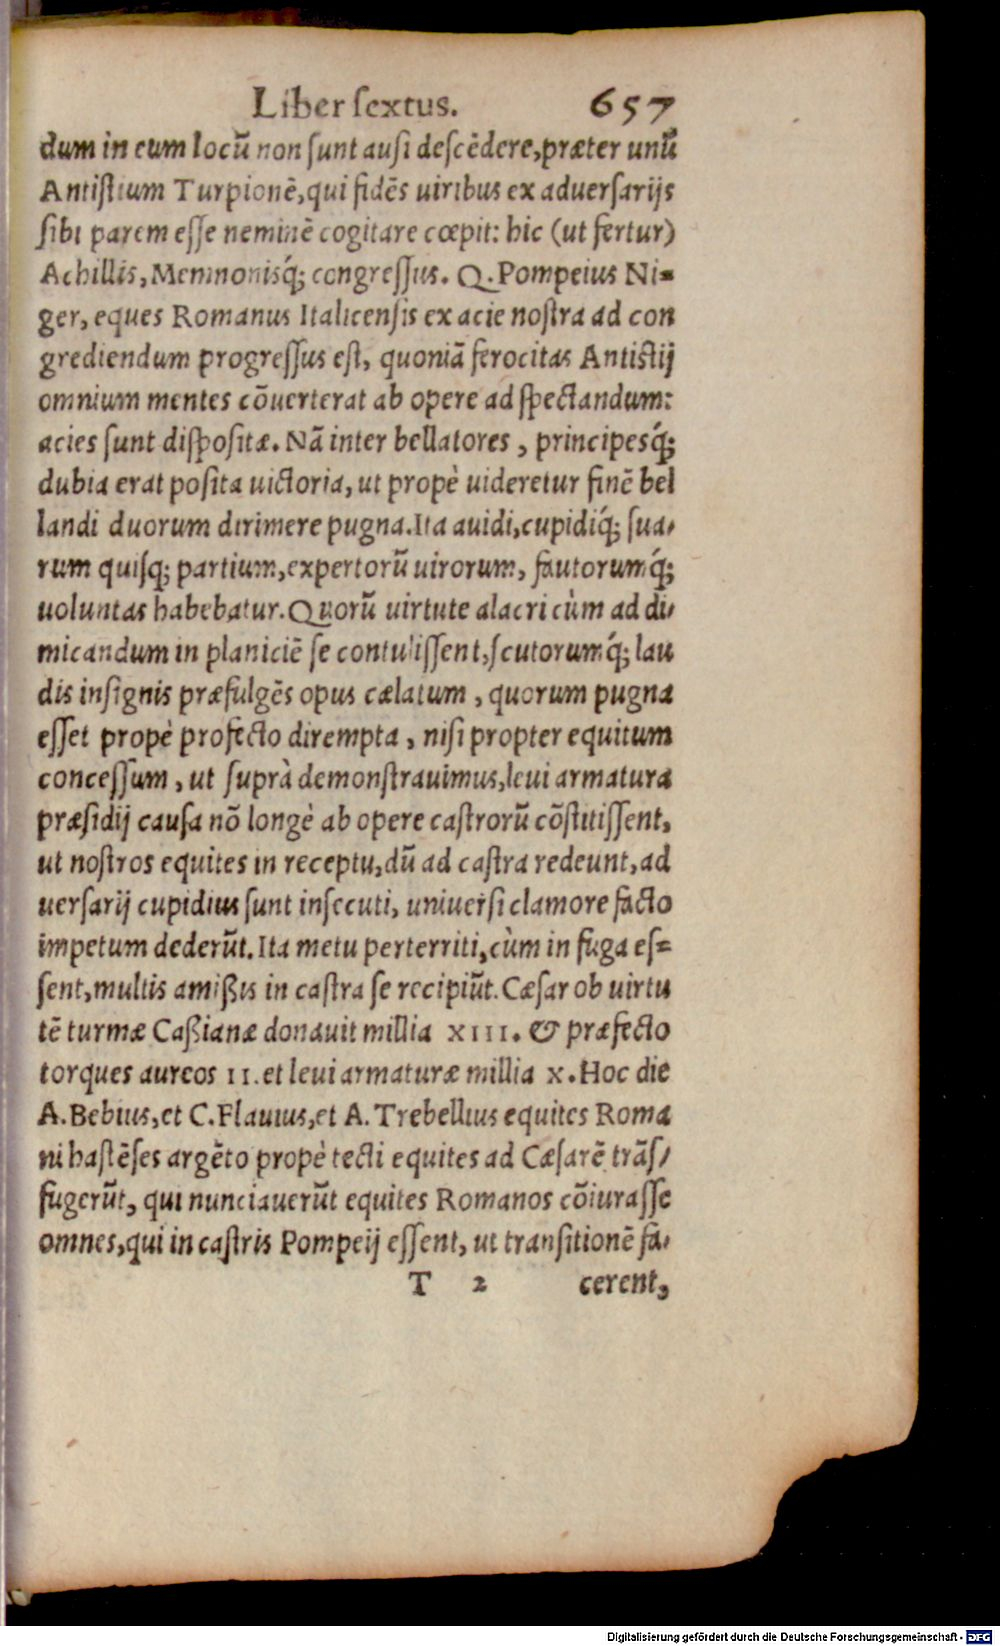 Liber ſextus. 657
dum in eum locũ non ſunt auſi deſcẽdere, præter unũ
Antiſtium Turpionẽ, qui fidẽs uiribus ex aduerſarijs
ſibi parem eſſe neminẽ cogitare cœpit: hic (ut fertur)
Achillis, Memnonisq́; congreſſus. Q. Pompeius Ni-
ger, eques Romanus Italicenſis ex acie noſtra ad con
grediendum progreſſus eſt, quoniã ferocitas Antiſtij
omnium mentes cõuerterat ab opere ad ſpectandum:
acies ſunt diſpoſitæ. Nã inter bellatores, principesq́;
dubia erat poſita uictoria, ut propè uideretur finẽ bel
landi duorum dirimere pugna. Ita auidi, cupidiq́; ſua-
rum quiſq; partium, expertorũ uirorum, fautorumq́;
uoluntas habebatur. Quorũ uirtute alacri cùm ad di-
micandum in planiciẽ ſe contuliſſent, ſcutorumq́; lau
dis inſignis præfulgẽs opus cælatum, quorum pugna
eſſet propè profecto dirempta, niſi propter equitum
conceſſum, ut ſuprà demonſtrauimus, leui armatura
præſidij cauſa nõ longè ab opere caſtrorũ cõſtitiſſent,
ut noſtros equites in receptu, dũ ad caſtra redeunt, ad
uerſarij cupidius ſunt inſecuti, uniuerſi clamore facto
impetum dederũt. Ita metu perterriti, cùm in fuga eſ-
ſent, multis amißis in caſtra ſe recipiũt. Cæſar ob uirtu
tẽ turmæ Caßianæ donauit millia XIII. & præfecto
torques aureos II. et leui armaturæ millia X. Hoc die
A. Bebius, et C. Flauius, et A. Trebellius equites Roma
ni haſtẽſes argẽto propè tecti equites ad Cæſarẽ trãſ-
fugerũt, qui nunciauerũt equites Romanos cõiuraſſe
omnes, qui in caſtris Pompeij eſſent, ut tranſitionẽ fa-
T 2 cerent,
Digitalisierung gefördert durch die Deutsche Forschungsgemeinschaft - DFG